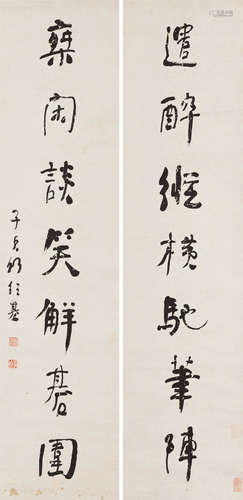 遣醉縱橫馳筆陣
椉閑談笑解碁圍
子貞何紹基